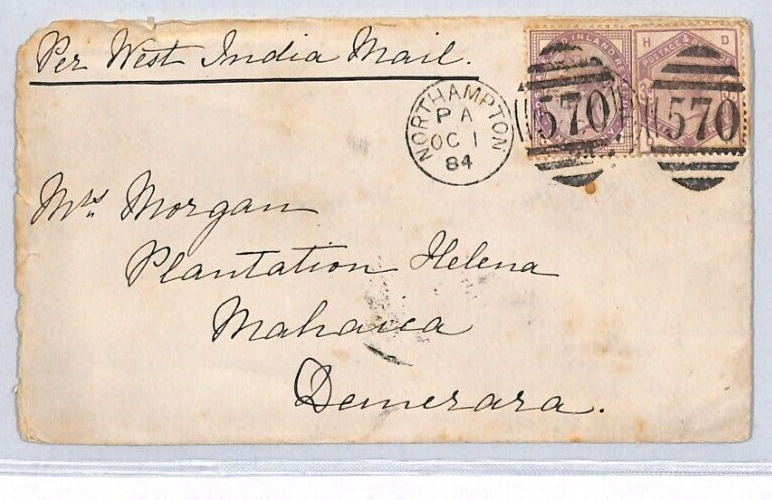 Per West India Mail.
H D
POSTAGE &
INLAND
570 570
NORTHAMPTON
PA
OC 1
84
Mrs Morgan
Plantation Helena
Mahaica
Demerara.